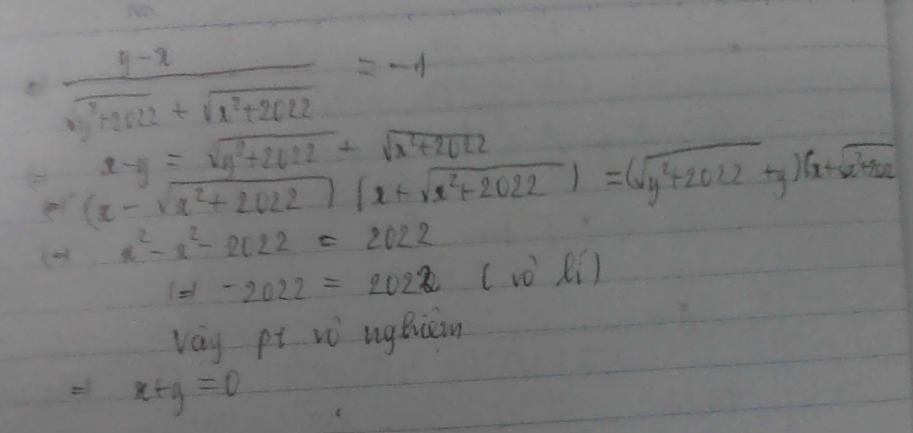 = \frac{y-x}{\sqrt{y^2+2022} + \sqrt{x^2+2022}} = -1
= x-y = \sqrt{y^2+2022} + \sqrt{x^2+2022}
(=) (x - \sqrt{x^2+2022}) (x + \sqrt{x^2+2022}) = (\sqrt{y^2+2022} + y)(x + \sqrt{x^2+2022}
(=) x^2 - x^2 - 2022 = 2022
(=) -2022 = 2022 (vô lí)
Vậy pt vô nghiệm
=) x+y=0